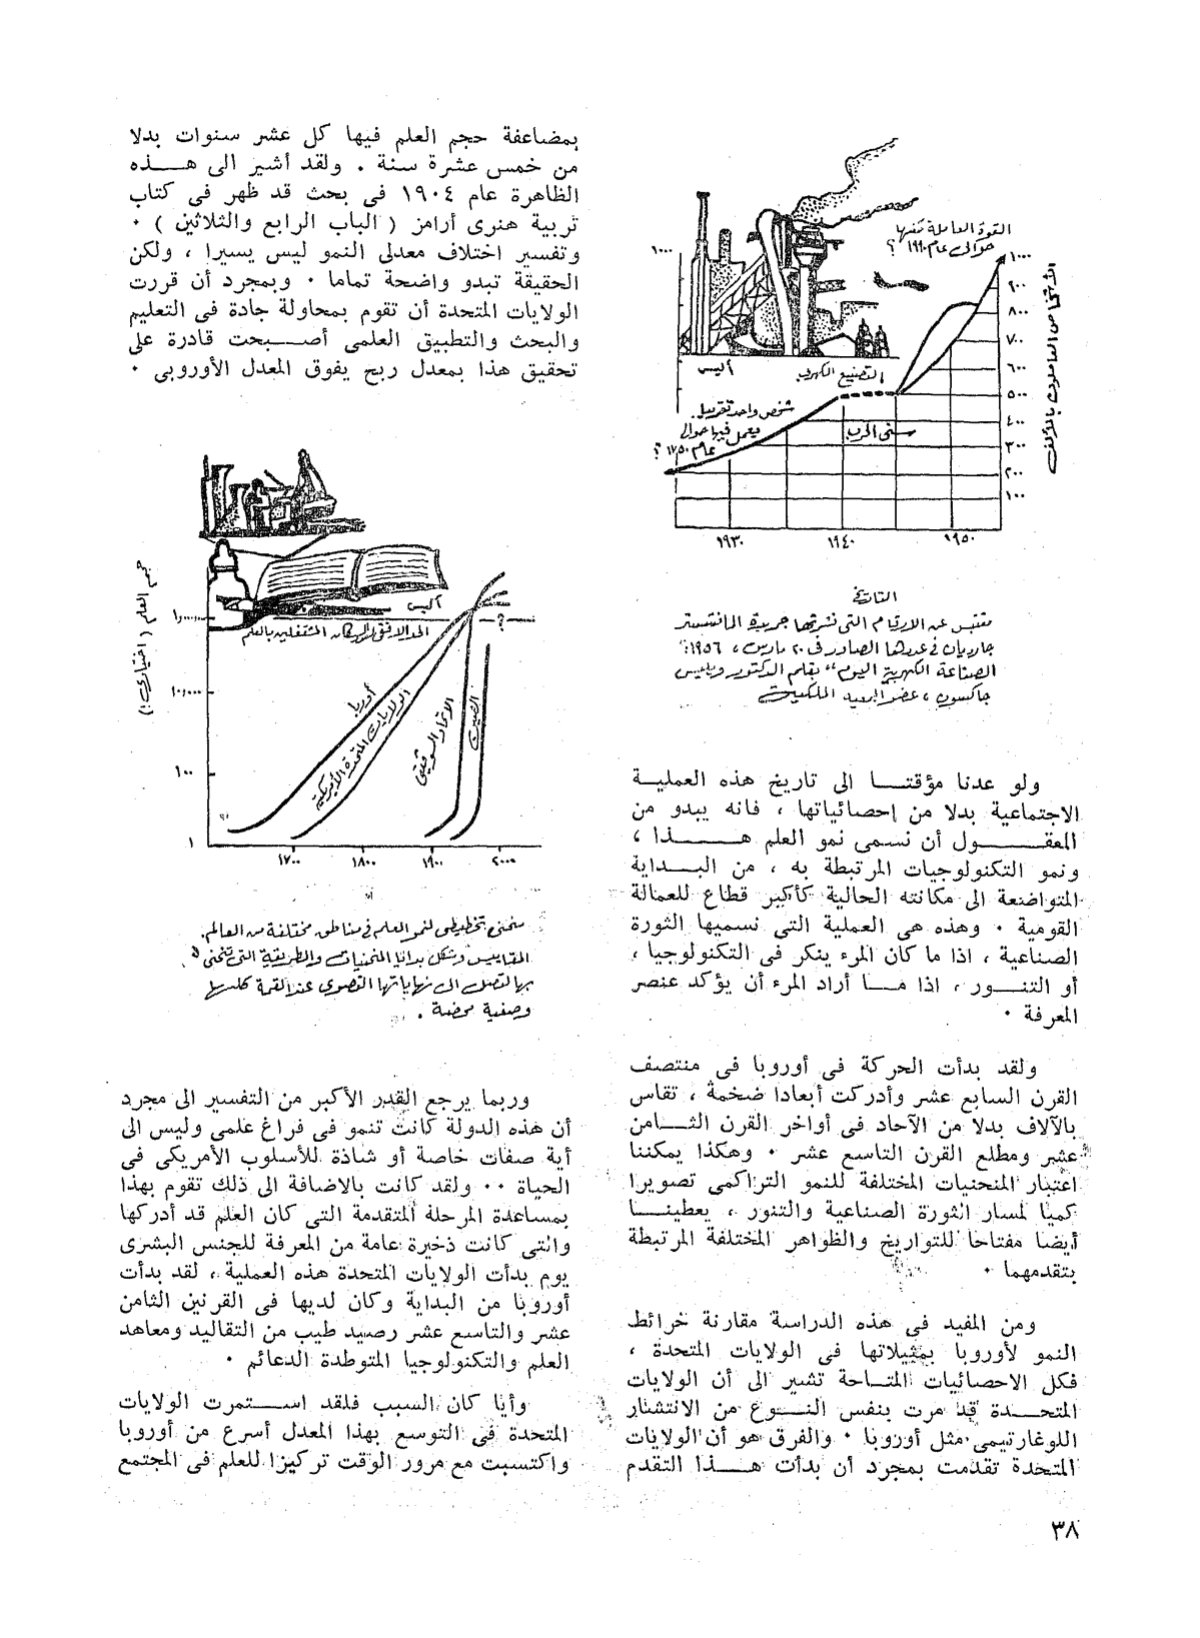 القوة العاملة كلها
حوالى عام ١٩٩٠ ؟
١٠٠٠
١٠٠٠
٩٠٠
٨٠٠
٧٠٠
٦٠٠
٥٠٠
٤٠٠
٣٠٠
٢٠٠
١٠٠
الأشخاص العاملون بالألف
أليس
التصنيع الكهربى
شخص واحد تقريبا
يعمل فيها حوالى
عام ١٧٥٠ ؟
سنى الحرب
١٩٣٠
١٩٤٠
١٩٥٠
التاريخ
مقتبس عن الارقام التى نشرتها جريدة المانشستر
جارديان فى عددها الصادر فى ٢٠ مارس ، ١٩٥٦ :
الصناعة الكهربية اليوم " بقلم الدكتور ويليس
جاكسون ، عضو الجمعية الملكية
ولو عدنا مؤقتـــا الى تاريخ هذه العمليـة
الاجتماعية بدلا من إحصائياتها ، فانه يبدو من
المعقـــــول أن نسمى نمو العلم هـــــذا ،
ونمو التكنولوجيات المرتبطة به ، من البـــداية
المتواضعة الى مكانته الحالية كأكبر قطاع للعمالة
القومية ٠ وهذه هى العملية التى نسميها الثورة
الصناعية ، اذا ما كان المرء ينكر فى التكنولوجيا ،
أو التنـــور ، اذا مـــا أراد المرء أن يؤكد عنصر
المعرفة ٠
ولقد بدأت الحركة فى أوروبا فى منتصف
القرن السابع عشر وأدركت أبعادا ضخمة ، تقاس
بالآلاف بدلا من الآحاد فى أواخر القرن الثـــامن
عشر ومطلع القرن التاسع عشر ٠ وهكذا يمكننا
اعتبار المنحنيات المختلفة للنمو التراكمى تصويرا
كميا لمسار الثورة الصناعية والتنور ، يعطينـــا
أيضا مفتاحا للتواريخ والظواهر المختلفة المرتبطة
بتقدمهما ٠
ومن المفيد فى هذه الدراسة مقارنة خرائط
النمو لأوروبا بمثيلاتها فى الولايات المتحدة ،
فكل الاحصائيات المتـــاحة تشير الى أن الولايات
المتحـــدة قد مرت بنفس النـــوع من الانتشار
اللوغارتيمى مثل أوروبا ٠ والفرق هو أن الولايات
المتحدة تقدمت بمجرد أن بدأت هـــذا التقدم
بمضاعفة حجم العلم فيها كل عشر سنوات بدلا
من خمس عشرة سنة . ولقد أشير الى هـــــذه
الظاهرة عام ١٩٠٤ فى بحث قد ظهر فى كتاب
تربية هنرى أرامز ( الباب الرابع والثلاثين ) ٠
وتفسير اختلاف معدلى النمو ليس يسيرا ، ولكن
الحقيقة تبدو واضحة تماما ٠ وبمجرد أن قررت
الولايات المتحدة أن تقوم بمحاولة جادة فى التعليم
والبحث والتطبيق العلمى أصـــبحت قادرة على
تحقيق هذا بمعدل ربح يفوق المعدل الأوروبى ٠
حجم العلم ( اختيارى )
أليس
الحد الافقى للسكان المشتغلين بالعلم
١٠٠٠٠٠٠
١٠٠٠٠
١٠٠
١
- ؟ -
أوربا
الولايات المتحدة الأمريكية
الاتحاد السوفيتى
الصين
١٧٠٠
١٨٠٠
١٩٠٠
٢٠٠٠
منحنى تخطيطى لنمو العلم فى مناطق مختلفة من العالم.
المقاييس وشكل بدايا المنحنيات والطريقة التى تنحنى
بها لتصل الى نهاياتها القصوى عند القمة كلها
وصفية محضة .
وربما يرجع القدر الأكبر من التفسير الى مجرد
أن هذه الدولة كانت تنمو فى فراغ علمى وليس الى
أية صفات خاصة أو شاذة للأسلوب الأمريكى فى
الحياة ٠٠ ولقد كانت بالاضافة الى ذلك تقوم بهذا
بمساعدة المرحلة المتقدمة التى كان العلم قد أدركها
والتى كانت ذخيرة عامة من المعرفة للجنس البشرى
يوم بدأت الولايات المتحدة هذه العملية ، لقد بدأت
أوروبا من البداية وكان لديها فى القرنين الثامن
عشر والتاسع عشر رصيد طيب من التقاليد ومعاهد
العلم والتكنولوجيا المتوطدة الدعائم ٠
وأيا كان السبب فلقد اســـتمرت الولايات
المتحدة فى التوسع بهذا المعدل أسرع من أوروبا
واكتسبت مع مرور الوقت تركيزا للعلم فى المجتمع
٣٨